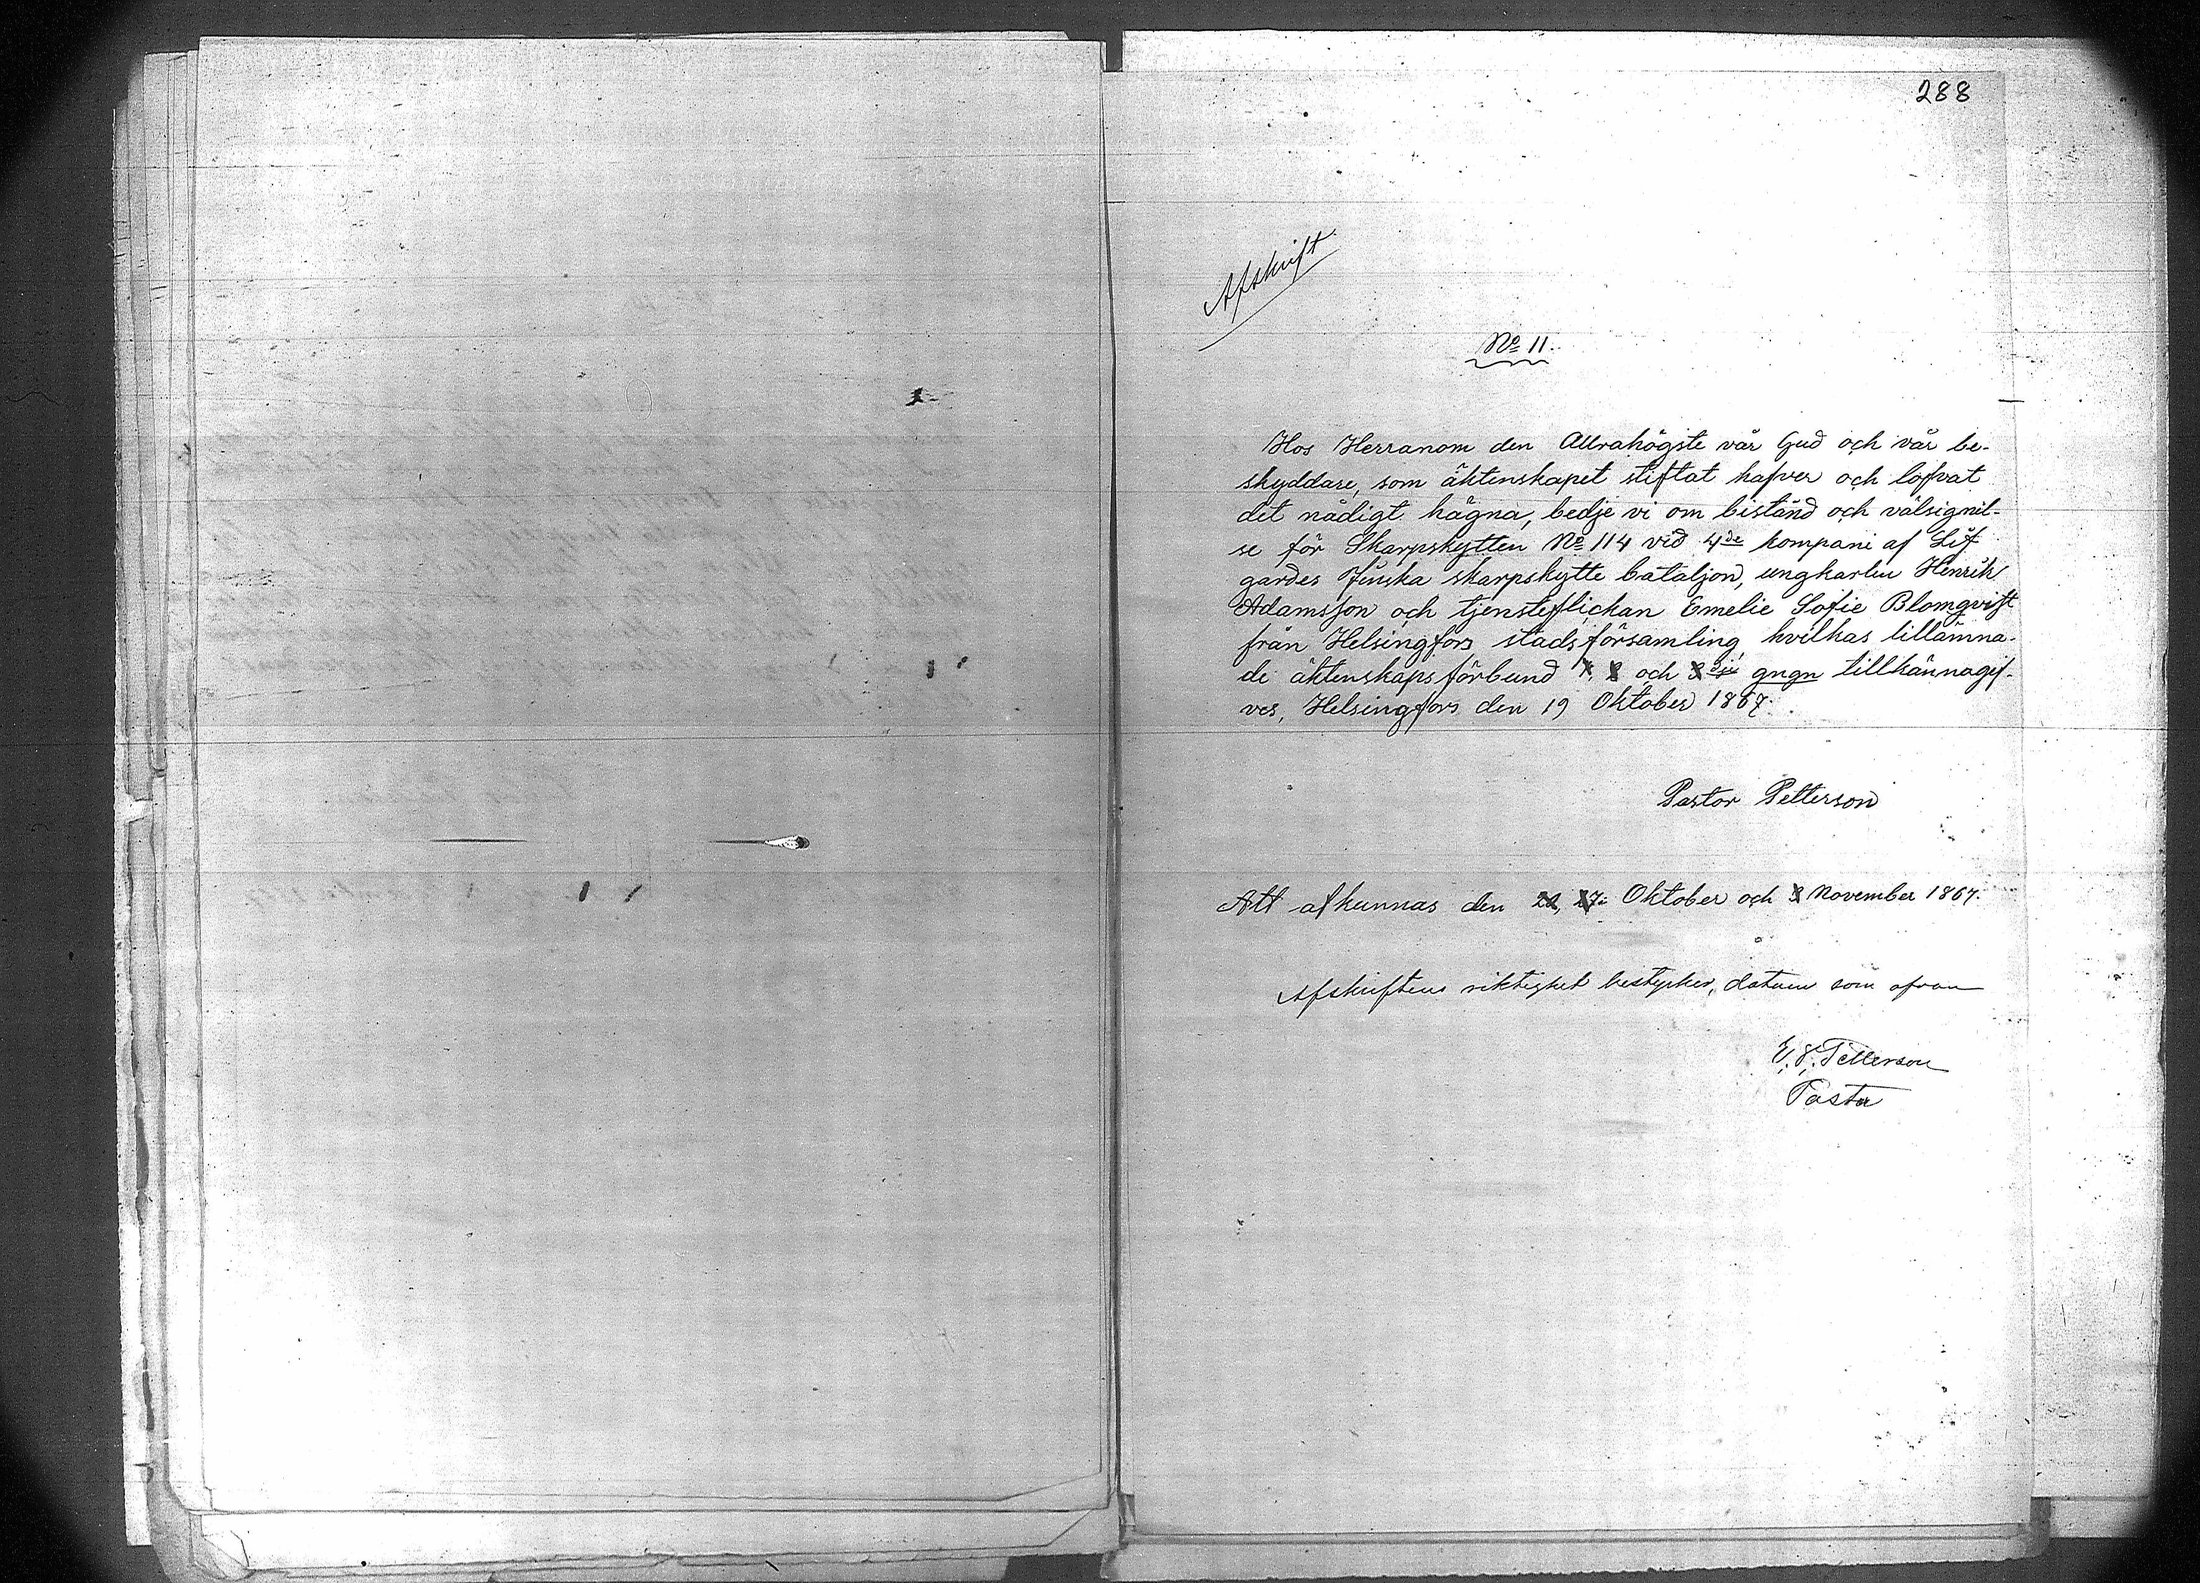 288
Afskrift
No 11.
Hos Herranom den Allrahögste vår Gud och vår be-
skyddare, som äktenskapet stiftat hafver och lofvat
det nådigt hägna, bedje vi om bistånd och välsignil-
se för Skarpskytten No 114 vid 4de kompani af Lif
gardes Finska skarpskytte bataljon, ungkarlen Henrik
Adamsson och tjensteflickan Emelie Sofie Blomqvist
från Helsingfors stadsförsamling, hvilkas tillämna-
de äktenskapsförbund 1, 2 och 3dje gngn tillkännagif-
ves, Helsingfors den 19 Oktober 1867.
Pastor Petterson
Att afkunnas den 20, 27. Oktober och 3 November 1867.
Afskriftens riktighet bestyrker, datum som ofvan
E. V. Petterson
Pastor